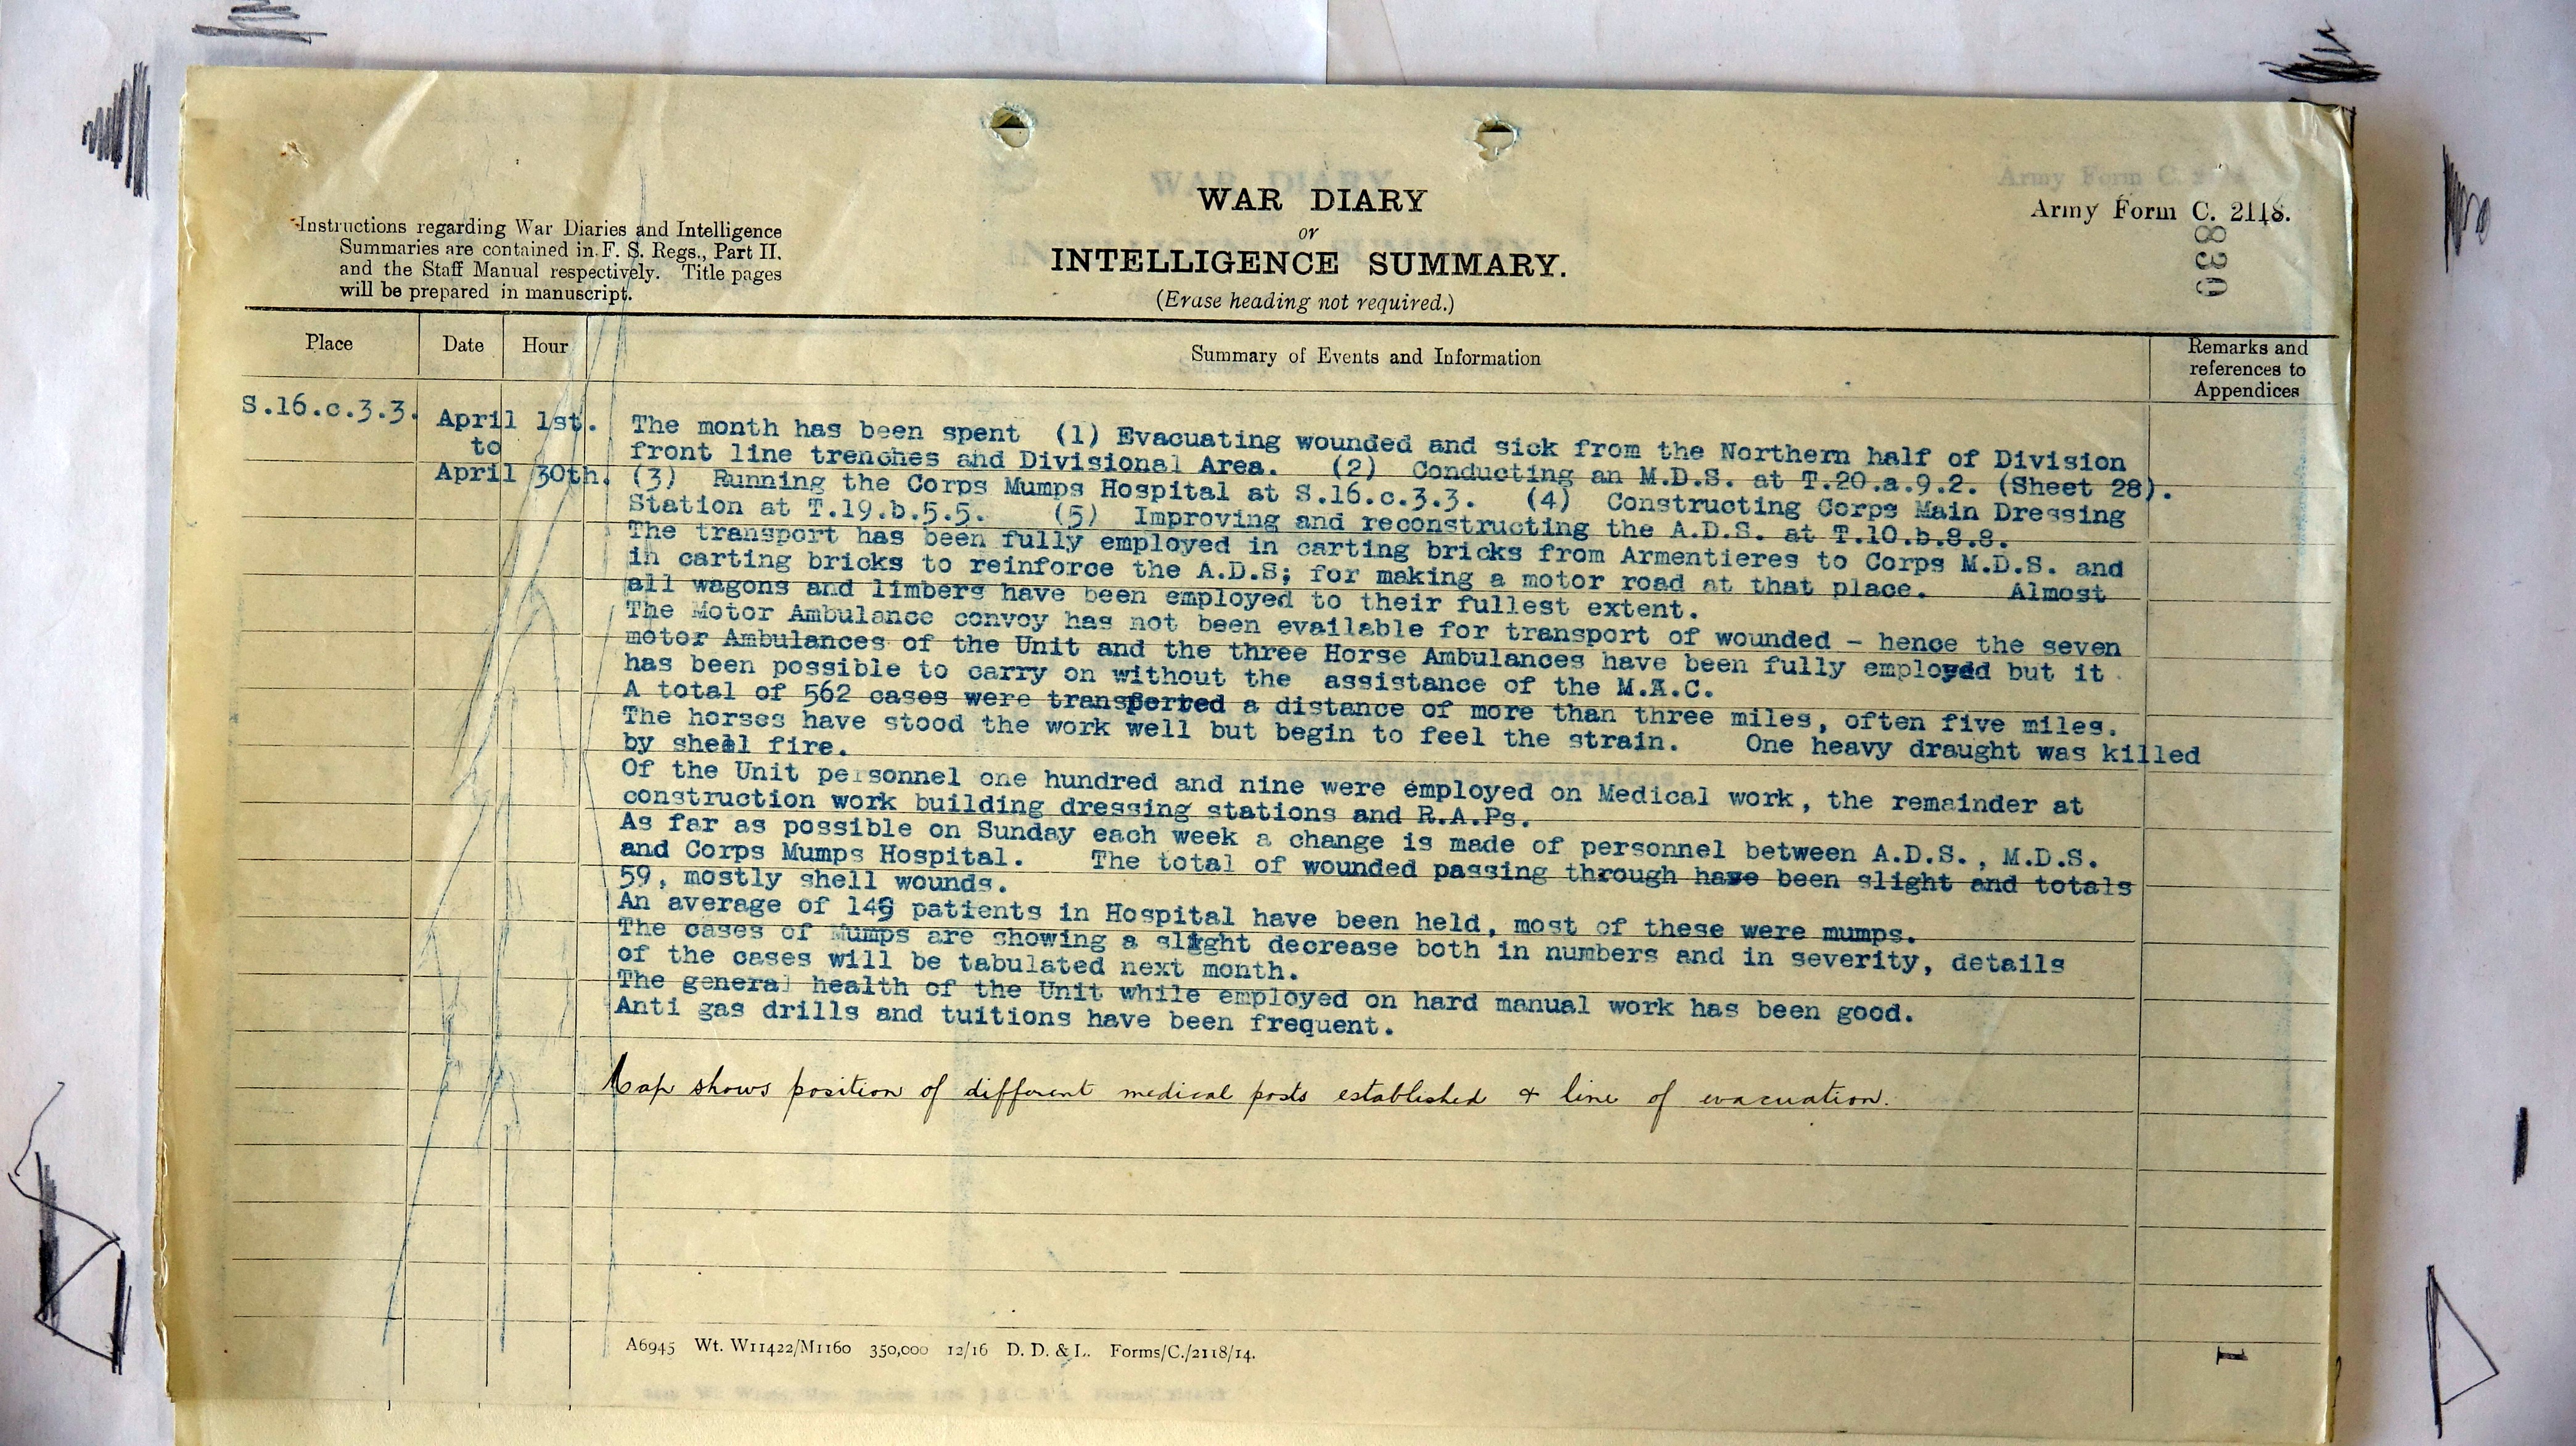 WAR DIARY
or
INTELLIGENCE SUMMARY.
(Erase heading not required.)
Army Form C. 2118.
830
Instructions regarding War Diaries and Intelligence
Summaries are contained in F. S. Regs., Part II.
and the Staff Manual respectively. Title pages
will be prepared in manuscript.
Place Date Hour Summary of Events and Information Remarks and references to Appendices
S.16.c.3.3.
April 1st.
to
April 30th.
The month has been spent (1) Evacuating wounded and sick from the Northern half of Division
front line trenches and Divisional Area. (2) Conducting an M.D.S. at T.20.a.9.2. (Sheet 28).
(3) Running the Corps Mumps Hospital at S.16.c.3.3. (4) Constructing Corps Main Dressing
Station at T.19.b.5.5. (5) Improving and reconstructing the A.D.S. at T.10.b.8.8.
The transport has been fully employed in carting bricks from Armentieres to Corps M.D.S. and
in carting bricks to reinforce the A.D.S; for making a motor road at that place. Almost
all wagons and limbers have been employed to their fullest extent.
The Motor Ambulance convoy has not been evailable for transport of wounded - hence the seven
motor Ambulances of the Unit and the three Horse Ambulances have been fully employed but it
has been possible to carry on without the assistance of the M.A.C.
A total of 562 cases were transferred a distance of more than three miles, often five miles.
The horses have stood the work well but begin to feel the strain. One heavy draught was killed
by shell fire.
Of the Unit personnel one hundred and nine were employed on Medical work, the remainder at
construction work building dressing stations and R.A.Ps.
As far as possible on Sunday each week a change is made of personnel between A.D.S., M.D.S.
and Corps Mumps Hospital. The total of wounded passing through have been slight and totals
59, mostly shell wounds.
An average of 149 patients in Hospital have been held, most of these were mumps.
The cases of Mumps are showing a slight decrease both in numbers and in severity, details
of the cases will be tabulated next month.
The general health of the Unit while employed on hard manual work has been good.
Anti gas drills and tuitions have been frequent.
Map shows position of different medical posts established & line of evacuation.
A6945 Wt. W11422/M1160 350,000 12/16 D. D. & L. Forms/C./2118/14.
1